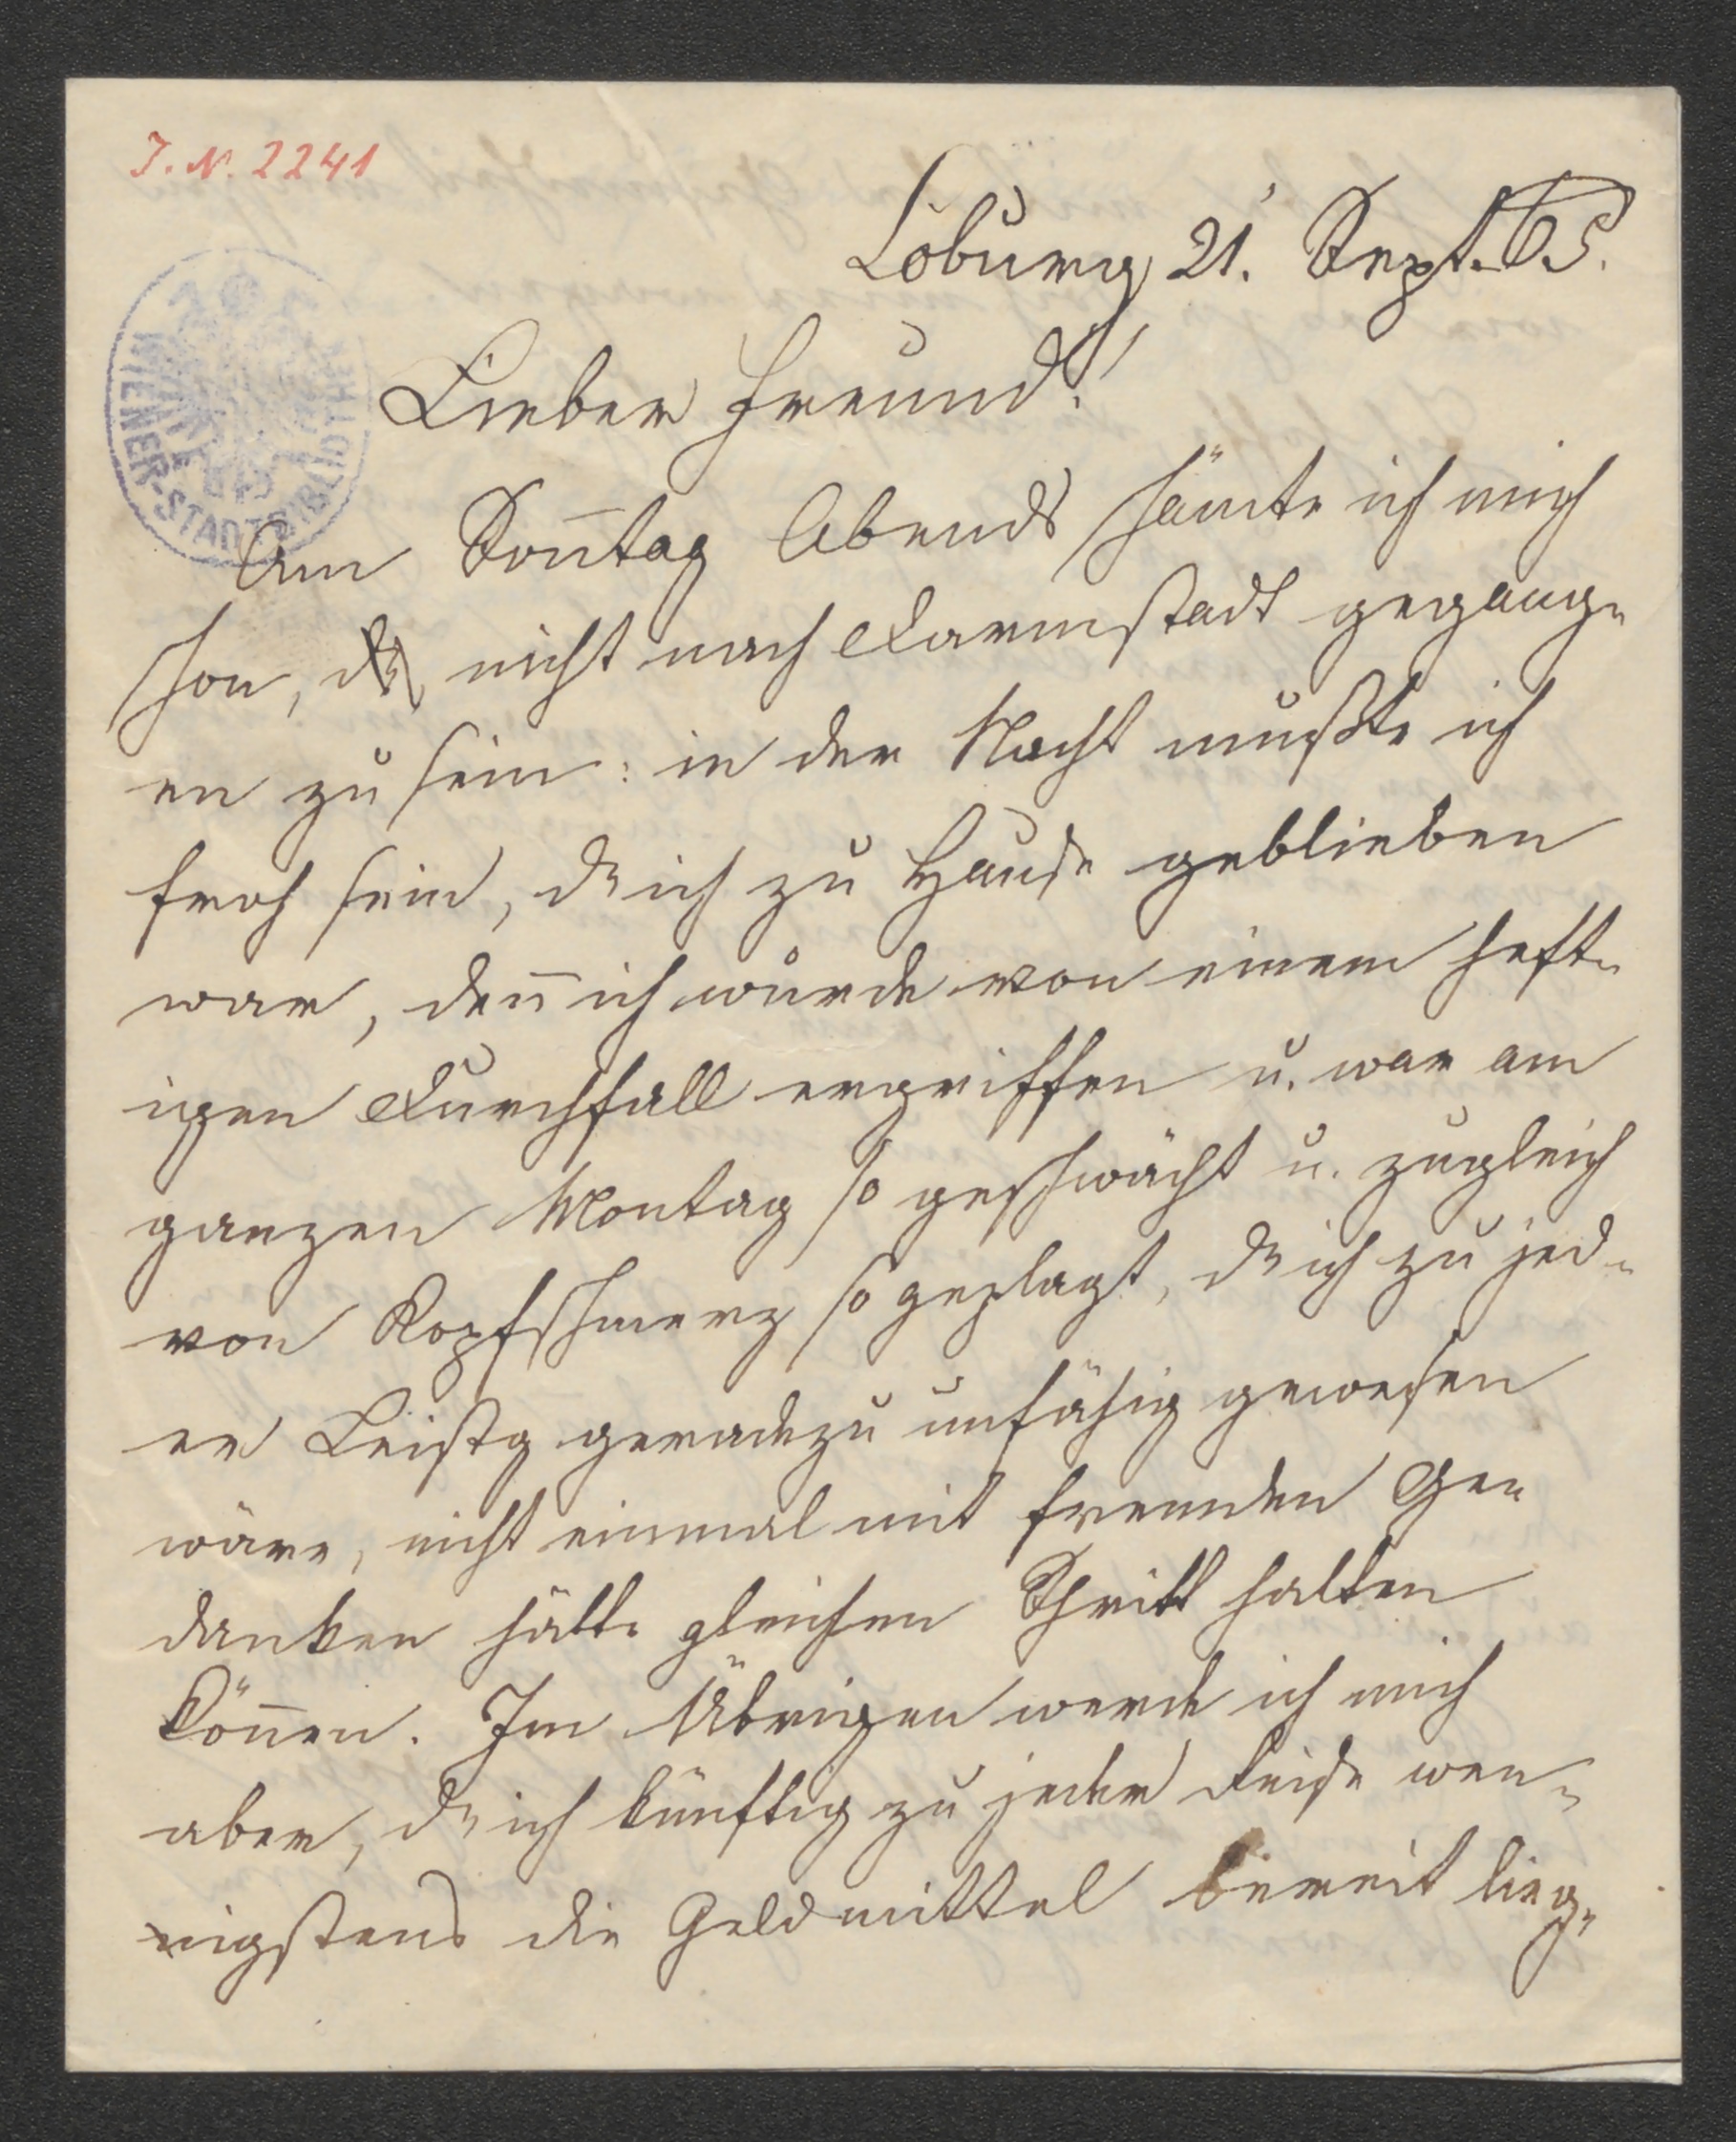 I. N. 2241
Coburg 21. Sept. 65.
WIENER-STADTBIBLIOTHEK
Lieber Freund!
Am Son̄tag Abends schämte ich mich
schon, nicht nach Darmstadt gegang-
en zu sein: in der Nacht mußte ich
froh sein, dß ich zu Hause geblieben
war, den̄ ich wurde von einem heft-
igen Durchfall ergriffen u. war am
ganzen Montag so geschwächt u. zugleich
von Kopfschmerz so geplagt, dß ich zu jed-
er Leistg geradezu unfähig gewesen
wäre, nicht einmal mit fremden Ge-
danken hätte gleichen Schritt halten
kön̄en. Im Übrigen werde ich mich
aber, dß ich künftig zu jeder Reise wen-
nigstens die Geldmittel bereit lieg-